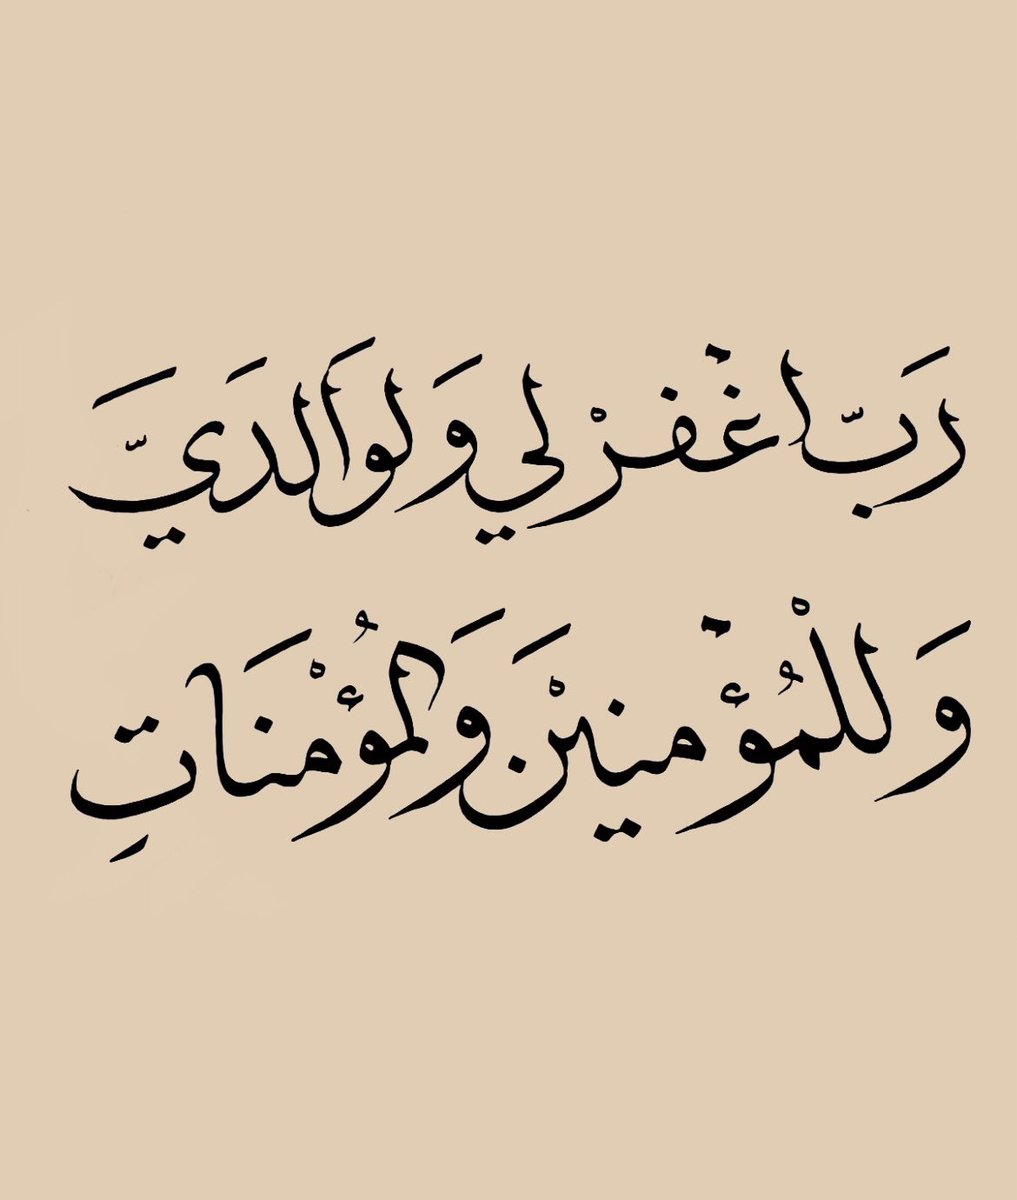 رَبَّ اغْفرْ لي وَلوَالدَيَّ
وَللْمُؤْمنينَ وَالمُؤْمنَاتِ